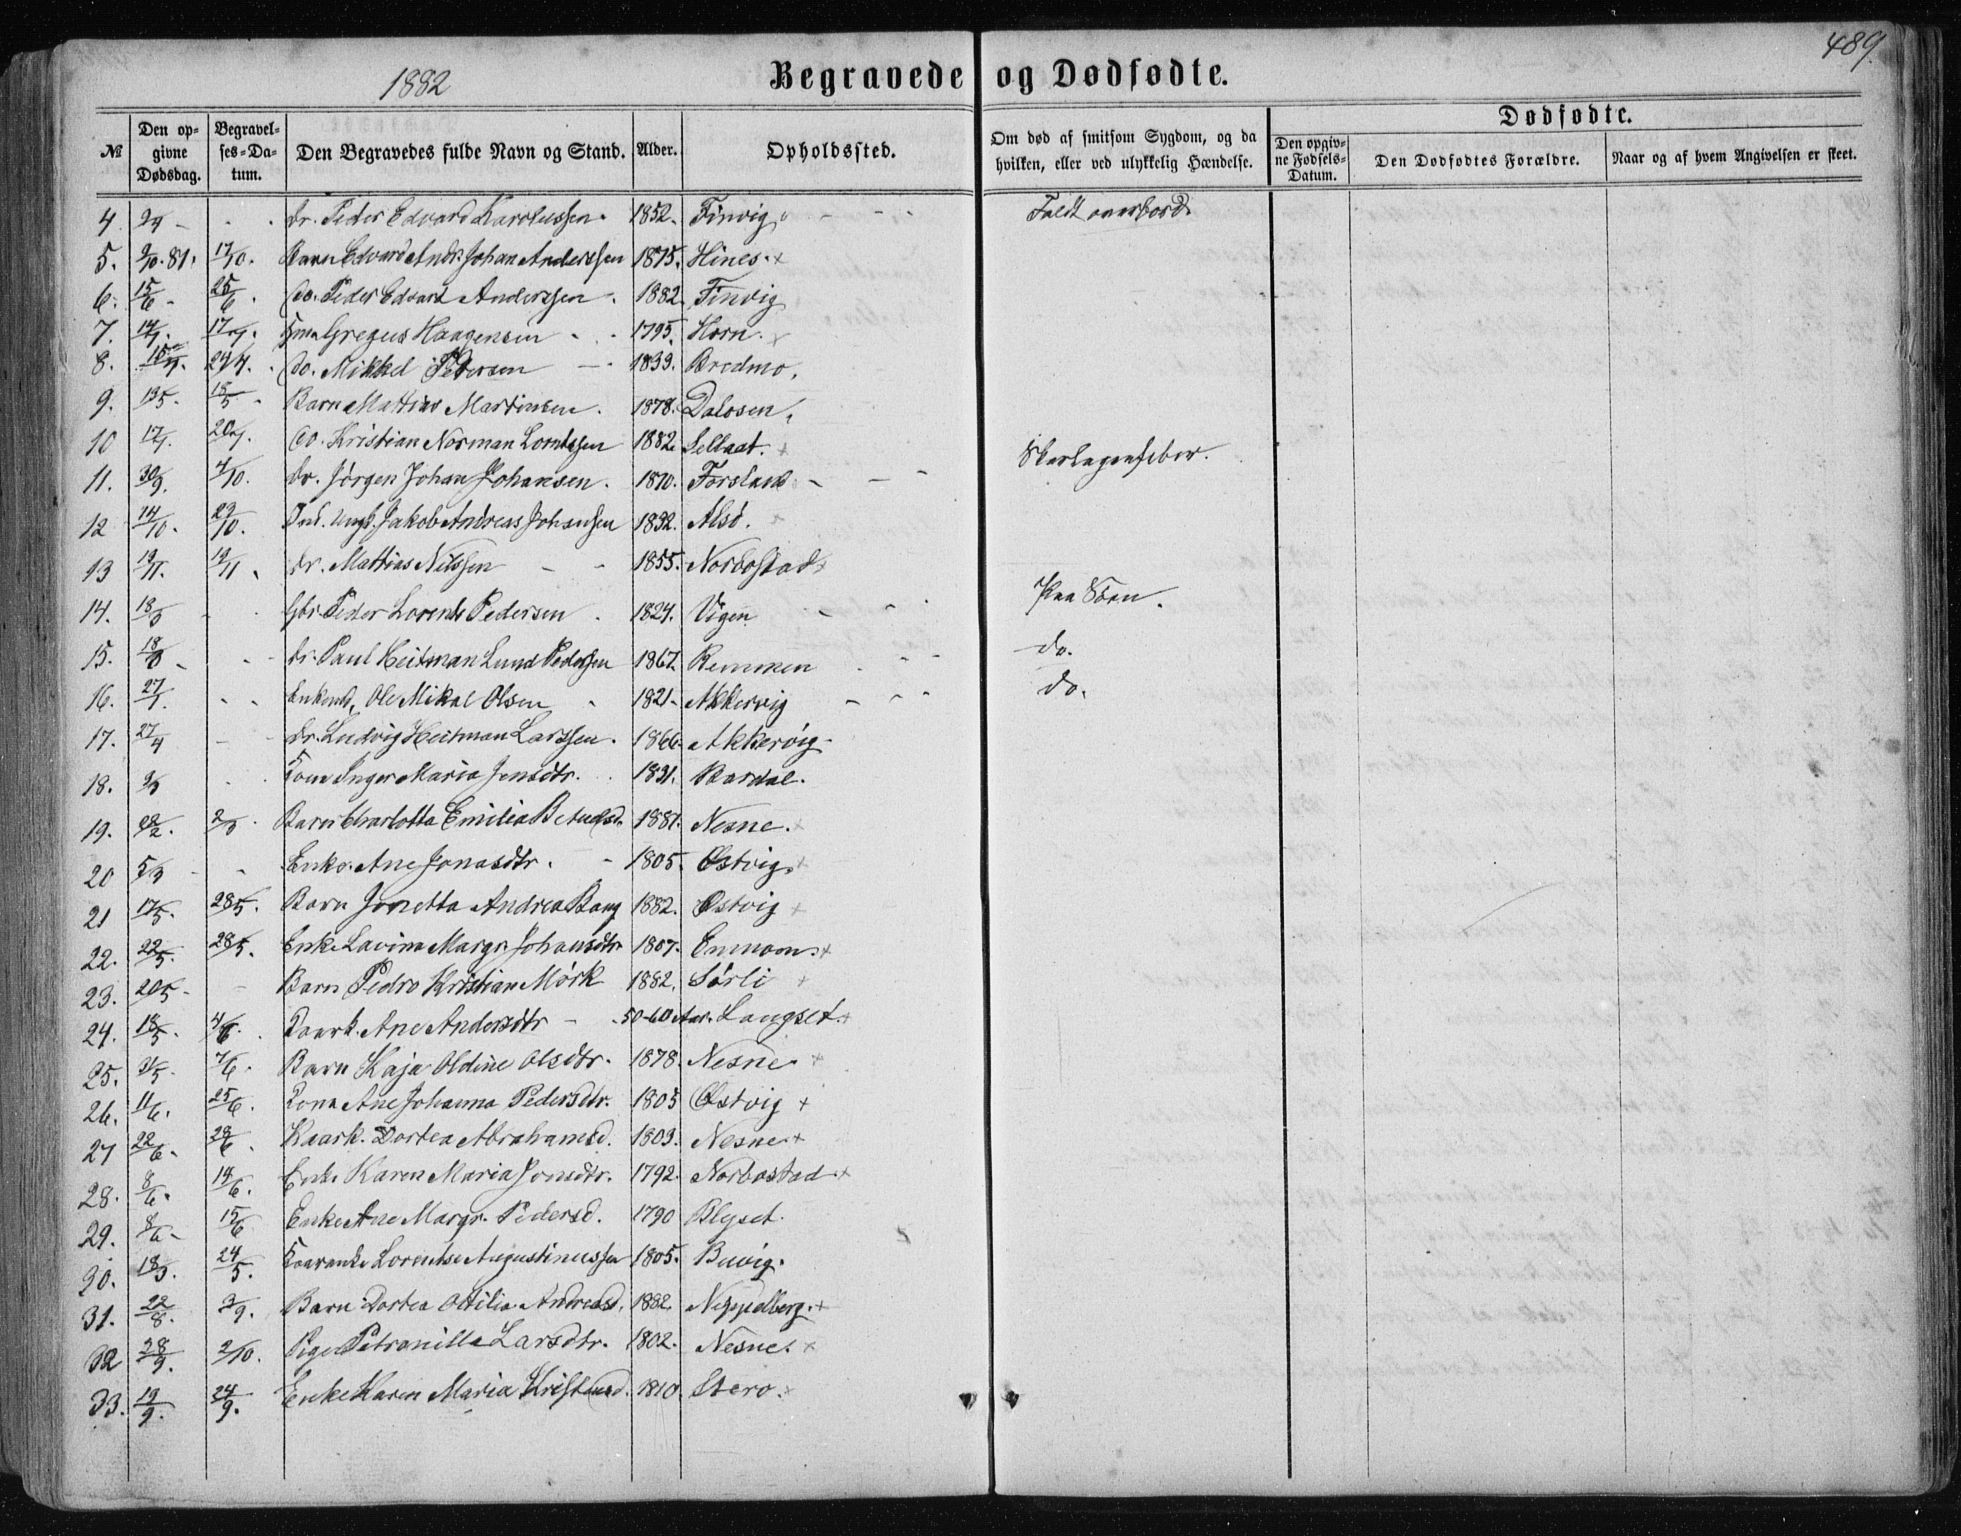 489.
1882
Begravede og Dødfødte.
Dødfødte.
№
Den opgivne Dødsdag.
Begravelses-Datum.
Den Begravedes fulde Navn og Stand.
Alder.
Opholdssted.
Om død af smitsom Sygdom, og da hvilken, eller ved ulykkelig Hændelse.
Den opgivne Fødsels-Datum.
Den Dødfødtes Forældre.
Naar og af hvem Angivelsen er skeet.
4. Dr. Peder Edvard Karolussen. 1852. Finvig Faldt overbord
5. 17/10. Barn Edvard Andr. Johan Anderssen 1875. Hines
6. 15/6 25/6. do. Peder Edvard Anderssen. 1882. Finvig
7. Gregus Haagensen 1795. Horn.
8. do. Mikkel Pedersen 1833. Bredmo.
9. 13/5. 15/5. Barn Mattias Martinsen. 1878. Dalosen
10 do. Kristian Norman 1882.
11. 30/9. 4/10. Dr. Jørgen Johan Johansen. 1870. Forsland Skarlagensfeber.
12 14/10. 23/10. Ind. Ungk. Jakob Andreas Johansen 1832. Alsø.
13 19/11. Dr. Mattias Nilssen 1855. Nordostad
14. 18/3 Gbr. Peder Lorents Pedersen. 1824. Vigen Paa Søen.
15. 18/3 Dr. Paul Heitman Lund Pederssen 1867. Remmen do.
16. 27/1. Enkemd. Ole Mikal Olsen 1821. Akkervig do.
17. 27/4 Dr. Ludvig Heitman Larssen. 1866. Akkervig
18. Kone Inger Maria Jensdtr. 1831. Bardal.
19. 2/3 Barn Charlotta Emilia 1881. Nesne.
20 5/3 Enke. Ane Jonasdtr. 1805. Østvig
21 17/5. 28/5. Barn Jonetta Andrea Bang 1882. Østvig
22. 22/5. 28/5. Enke Lavina Margr. Johansdtr 1807.
23. 20/5 Barn Pedro Kristian Mörk 1882. Sörli
24. 18/5. 4/6. Kaark. Ane Andersdtr 50-60 Aar. Langset.
25. 31/5. 4/6. Barn Kaja Oldine Olsdtr. 1878. Nesne
26. 11/6. 25/6. Kona Ane Johanna Pedersdtr. 1805 Østvig
27 22/6. 28/6. Kaark. Dortea Abrahamsd. 1803. Nesne
28. 8/6. 14/6. Enke Karen Maria Jonsdtr. 1792. Nordostad
29. 8/6 15/6 Enke Ane Margr. Pedersd. 1790 Blegset.
30. 18/5. 24/5. Lorentse Augustinussen 1805. Buvig.
31. 22/8. 3/9. Barn Dortea Ottilia Andreasd. 1882. Nippelberg
32 28/9. 2/10. Pige Petronille Larsdtr. 1802. Nesne.
33. 19/9. 24/9. Enke Karen Maria 1810.